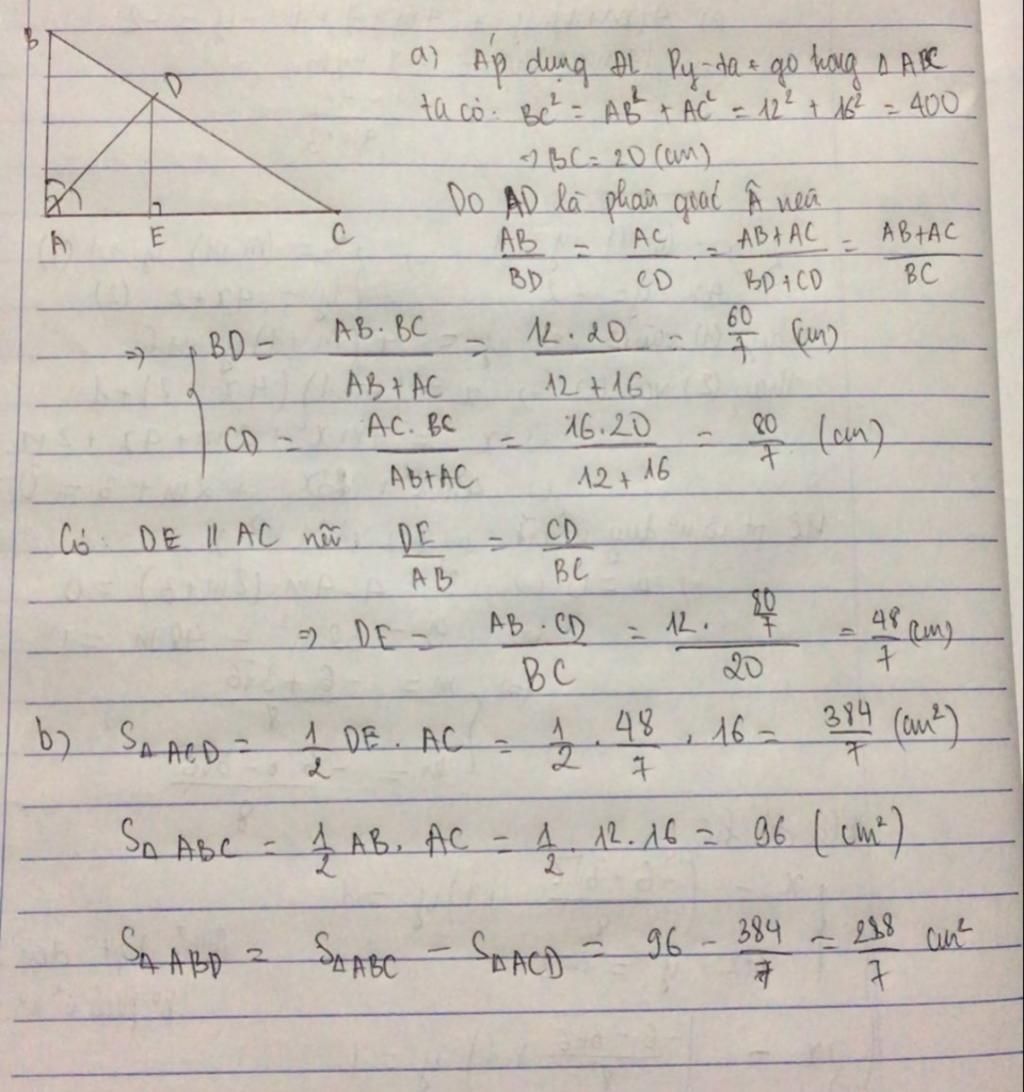 B
D
A E C
a) Áp dụng ĐL Py-ta-go trong Δ ABC
ta có: BC² = AB² + AC² = 12² + 16² = 400
=> BC = 20 (cm)
Do AD là phân giác Â nên
AB/BD = AC/CD = AB+AC/BD+CD = AB+AC/BC
=> { BD = AB.BC/AB+AC = 12.20/12+16 = 60/7 (cm)
CD = AC.BC/AB+AC = 16.20/12+16 = 80/7 (cm)
Có: DE // AC nên DE/AB = CD/BC
=> DE = AB.CD/BC = 12.80/7/20 = 48/7 (cm)
b) SΔACD = 1/2 DE.AC = 1/2 . 48/7 . 16 = 384/7 (cm²)
SΔABC = 1/2 AB.AC = 1/2 . 12.16 = 96 (cm²)
SΔABD = SΔABC - SΔACD = 96 - 384/7 = 288/7 cm²